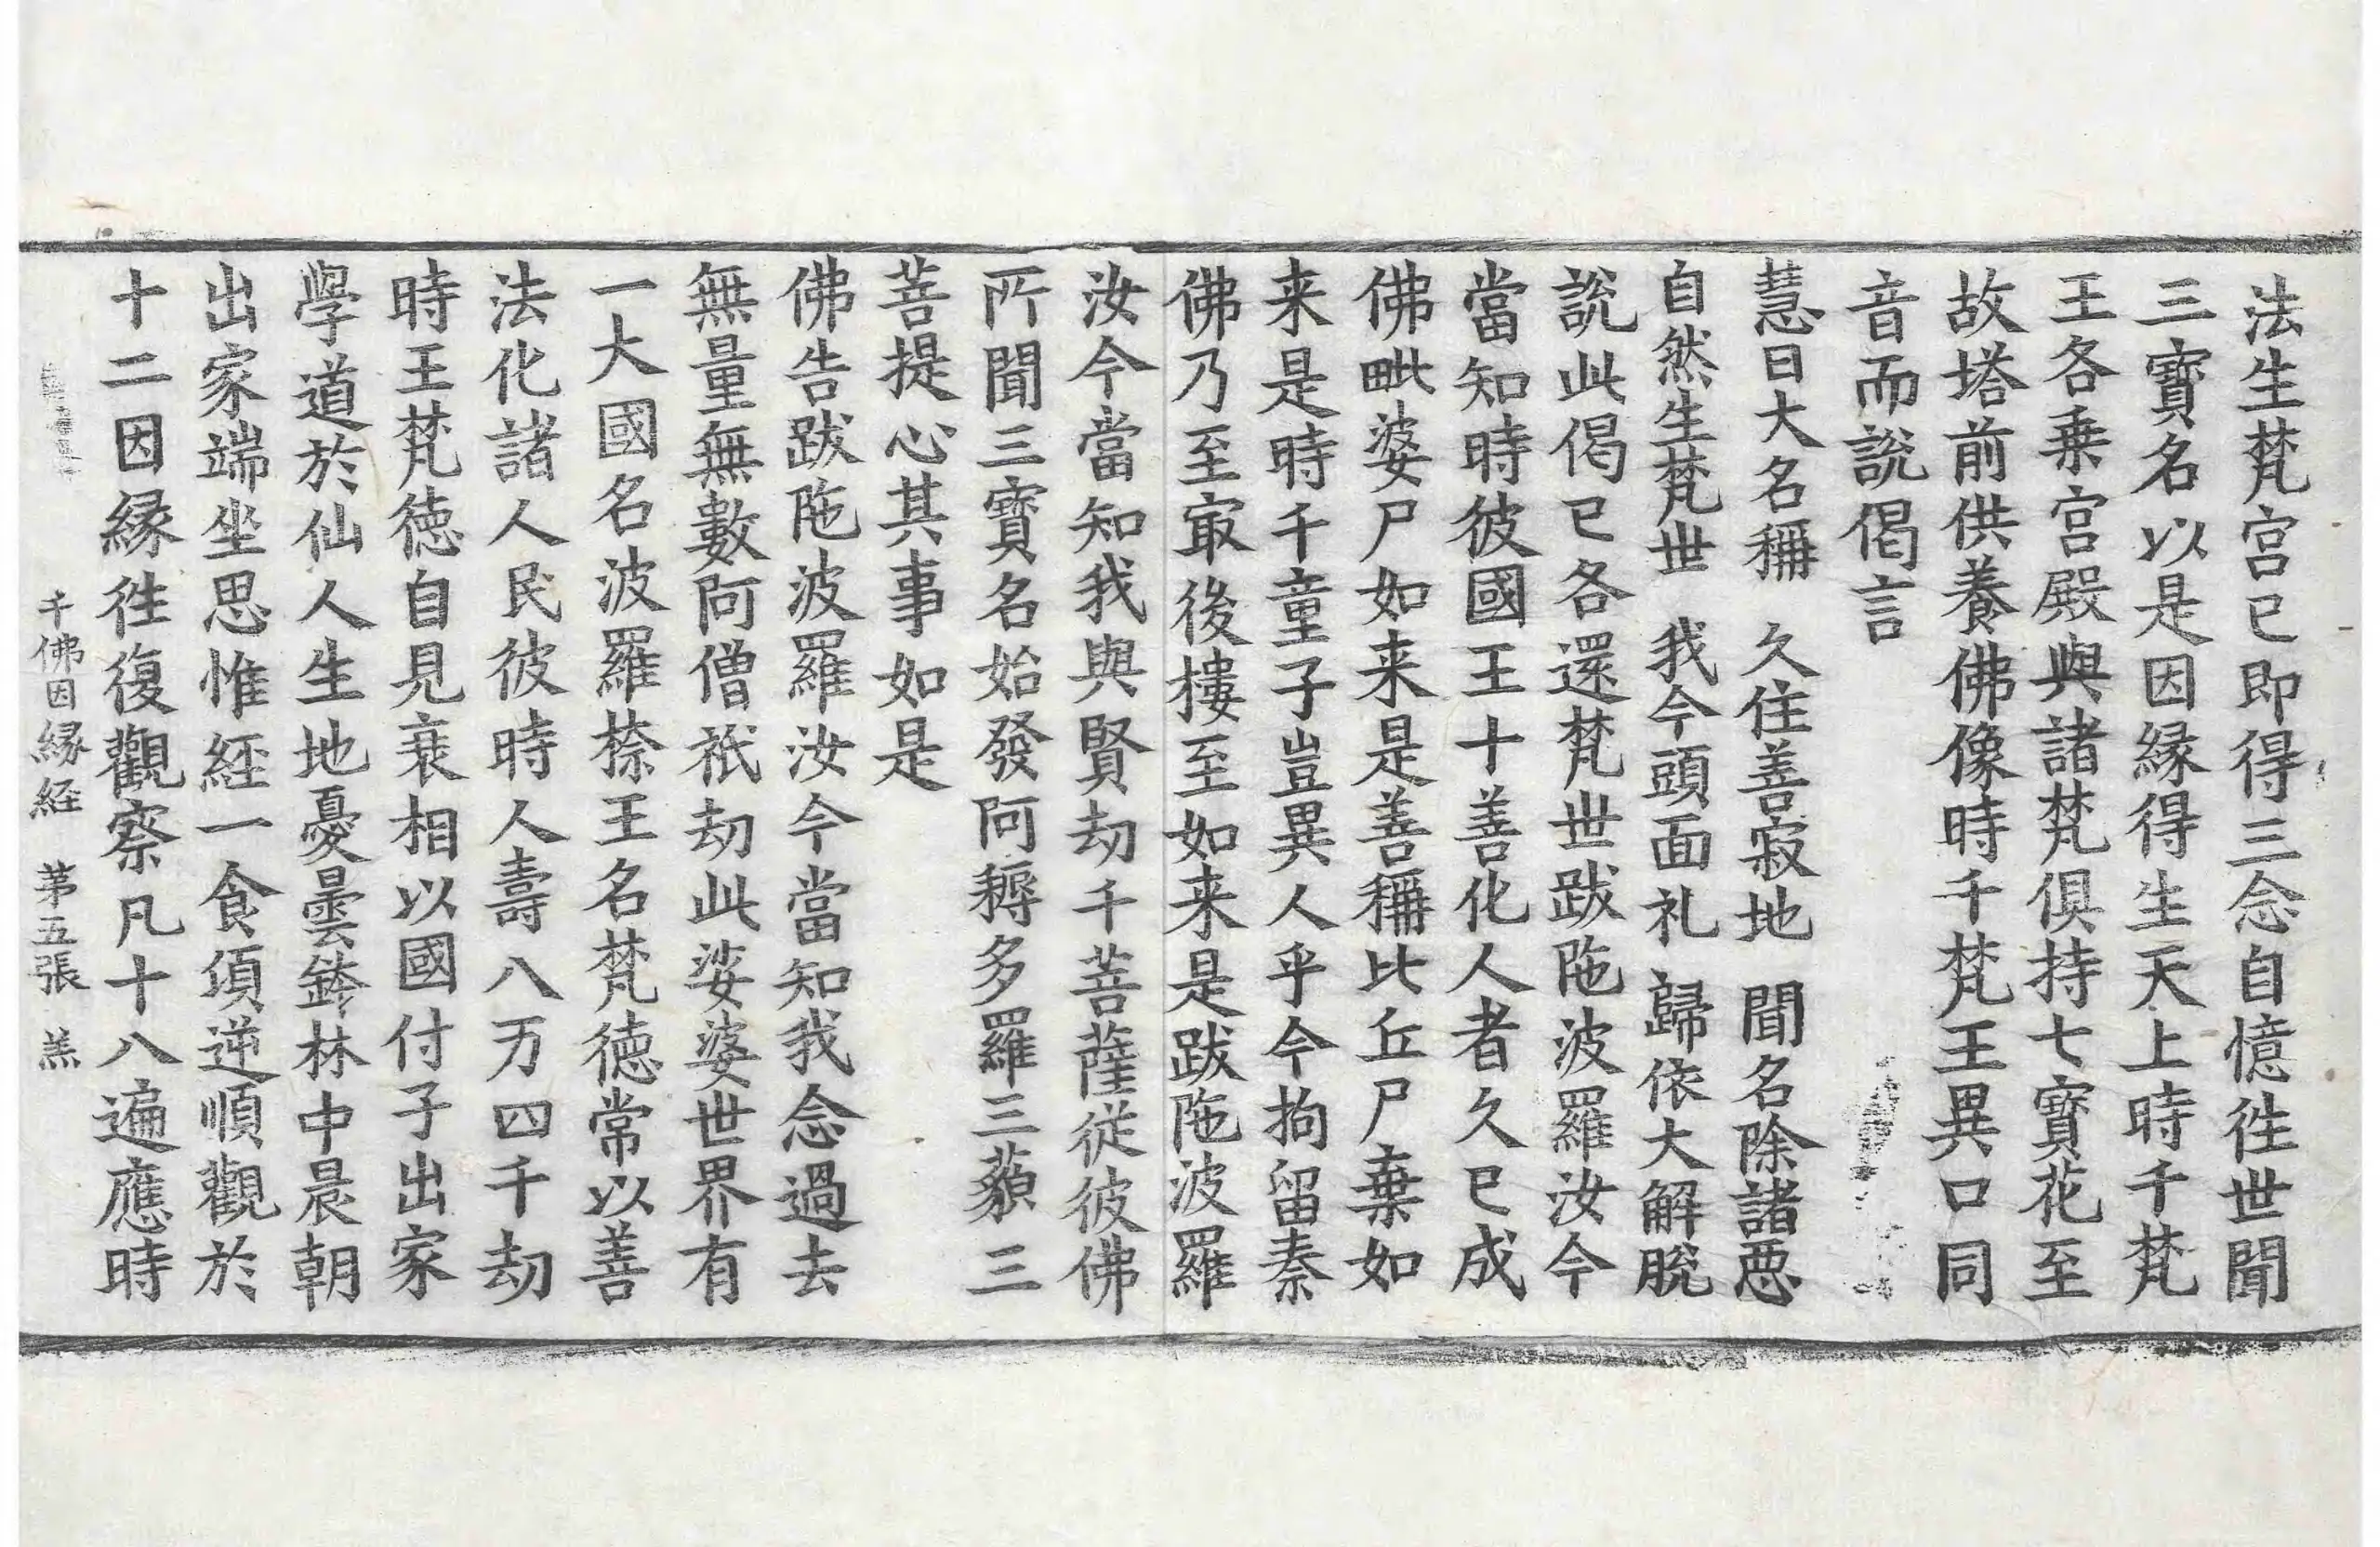 法生梵宮已即得三念自憶徃世聞
三寶名以是因縁得生天上時千梵
王各乗宮殿與諸梵俱持七寶花至
故塔前供養佛像時千梵王異口同
音而說偈言
慧日大名稱　久住善寂地　聞名除諸惡
自然生梵世　我今頭面礼　歸依大解脫
說此偈已各還梵世跋陁波羅汝今
當知時彼國王十善化人者久已成
佛毗婆尸如来是善稱比丘尸棄如
来是時千童子豈異人乎今拘留秦
佛乃至㝡後樓至如来是跋陁波羅
汝今當知我與賢劫千菩薩從彼佛
所聞三寶名始發阿耨多羅三藐三
菩提心其事如是
佛告跋陁波羅汝今當知我念過去
無量無數阿僧祇劫此娑婆世界有
一大國名波羅㮈王名梵德常以善
法化諸人民彼時人壽八万四千劫
時王梵德自見衰相以國付子出家
學道於仙人生地憂曇鉢林中晨朝
出家端坐思惟經一食頃逆順觀於
十二因縁徃復觀察凡十八遍應時
千佛因縁經　第五張　羔